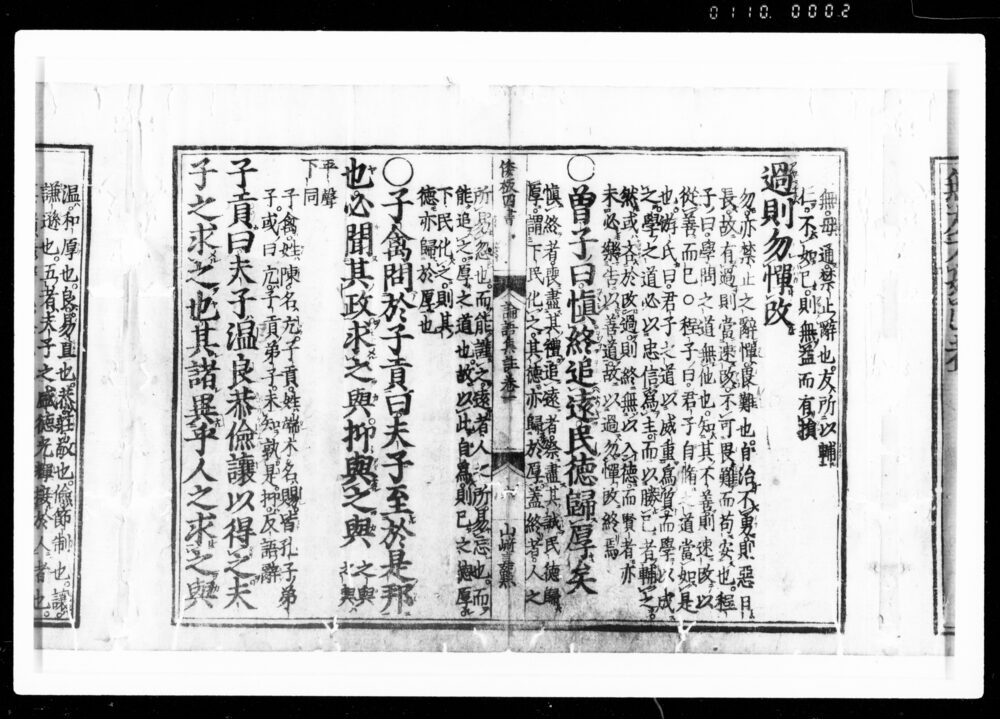 0110. 0002
無毋通禁止辭也友所以輔
仁不如己則無益而有損
過則勿憚改
勿亦禁止之辭憚畏難也自治不勇則惡日
長故有過則當速改不可畏難而苟安也程
子曰學問之道無他也知其不善則速改以
從善而已○程子曰君子自脩之道當如是
也游氏曰君子之道以威重爲質而學以成
之學之道必以忠信爲主而以勝己者輔之
然或吝於改過則終無以入德而賢者亦
未必樂告以善道故以過勿憚改終焉
○曾子曰愼終追遠民德歸厚矣
愼終者喪盡其禮追遠者祭盡其誠民德歸
厚謂下民化之其德亦歸於厚蓋終者人之
倭板四書
論語集註卷一
六
山崎嘉點
所易忽也而能謹之遠者人之所易忘也而
能追之厚之道也故以此自爲則己之德厚
下民化之則其
德亦歸於厚也
○子禽問於子貢曰夫子至於是邦
也必聞其政求之與抑與之與
之與
之與
平聲
下同
子禽姓陳名亢子貢姓端木名賜皆孔子弟
子或曰亢子貢弟子未知孰是抑反語辭
子貢曰夫子温良恭儉讓以得之夫
子之求之也其諸異乎人之求之與
温和厚也良易直也恭莊敬也儉節制也讓
謙遜也五者夫子之盛德光輝接於人者也